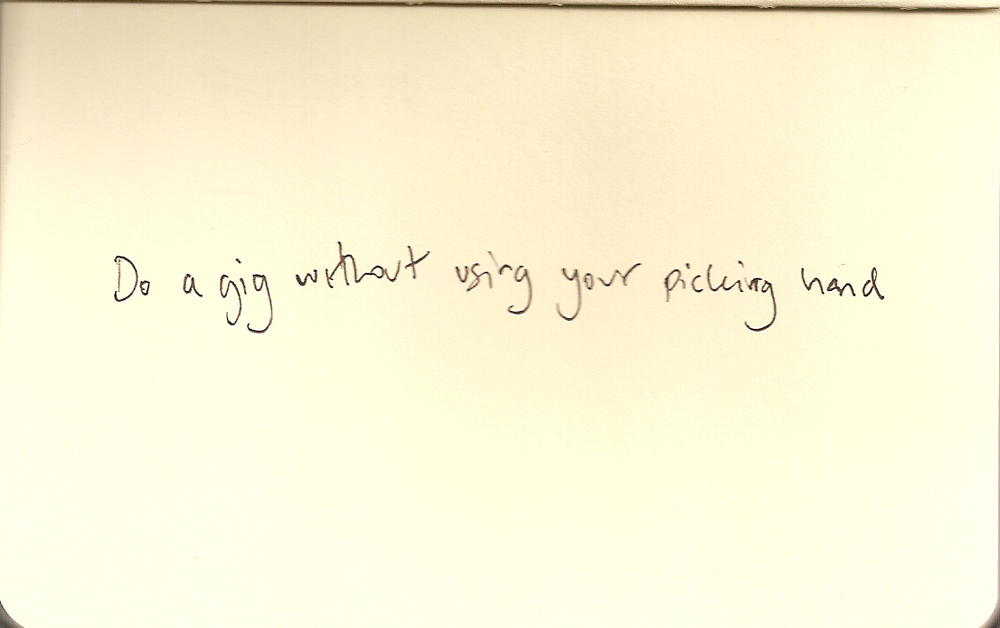 Do a gig without using your picking hand